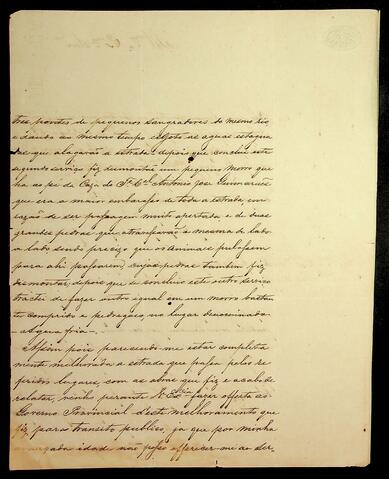 tres pontes de pequenos sangradores do mesmo rio
e dando ao mesmo tempo exgoto as aguas estagna
das que alagavão a estrada: depois que conclui este
segundo serviço fiz desmontar um pequeno morro que
ha ao pé da Caza do Sr. Cel. Antonio Jose Guimarães
que era o maior embaraço de toda a estrada, em
razão de ser passagem muito apertada e de duas
grandes pedras que atravessavão a mesma de lado
a lado sendo precizo que os animaes pulassem
para ahi passarem, cujas pedras tambem fiz
desmontar, depois que se concluio este outro serviço
tractei de fazer outro igual em um morro bastan
te comprido e pedragozo, no lugar denominado
agua fria.
Assim pois parecendo-me estar completa
mente melhorada a estrada que passa pelos re
feridos lugares, com as obras que fiz e acabo de
relatar, venho perante V. Excia. fazer offerta ao
Governo Provincial d'este melhoramento que
fiz para o transito publico, ja que por minha
avançada idade não posso offerecer-me ao ser-